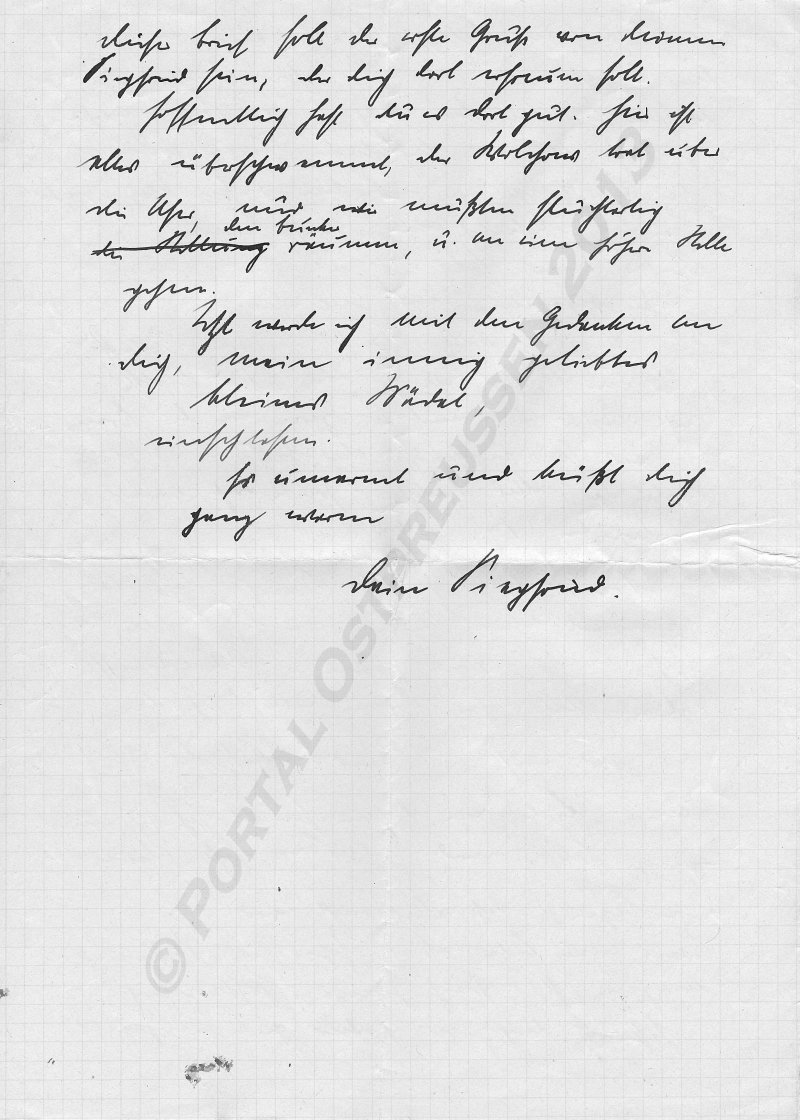 dieser Brief soll der erste Gruß von deinem
Siegfried sein, der dich dort erfreuen soll.
Hoffentlich hast du es dort gut. Hier ist
alles überschwemmt, der Wolchow trat über
die Ufer, und wir mußten fluchtartig
den Bunker
die Stellung räumen, u. an eine höhere Stelle
gehen.
Jetzt werde ich mit den Gedanken an
dich, mein innig geliebtes
kleines Mädel,
einschlafen.
Es umarmt und küßt dich
ganz warm
Dein Siegfried.
© PORTAL OSTPREUSSEN 2013